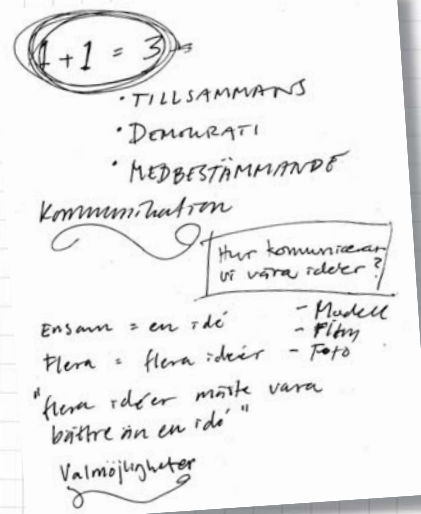 1 + 1 = 3
• TILLSAMMANS
• DEMOKRATI
• MEDBESTÄMMANDE
Kommunikation
Hur komunicerar
vi våra idéer?
Ensam = en idé
- Modell
- Film
Flera = flera idéer - Foto
"flera idéer måste vara
bättre än en idé"
Valmöjligheter